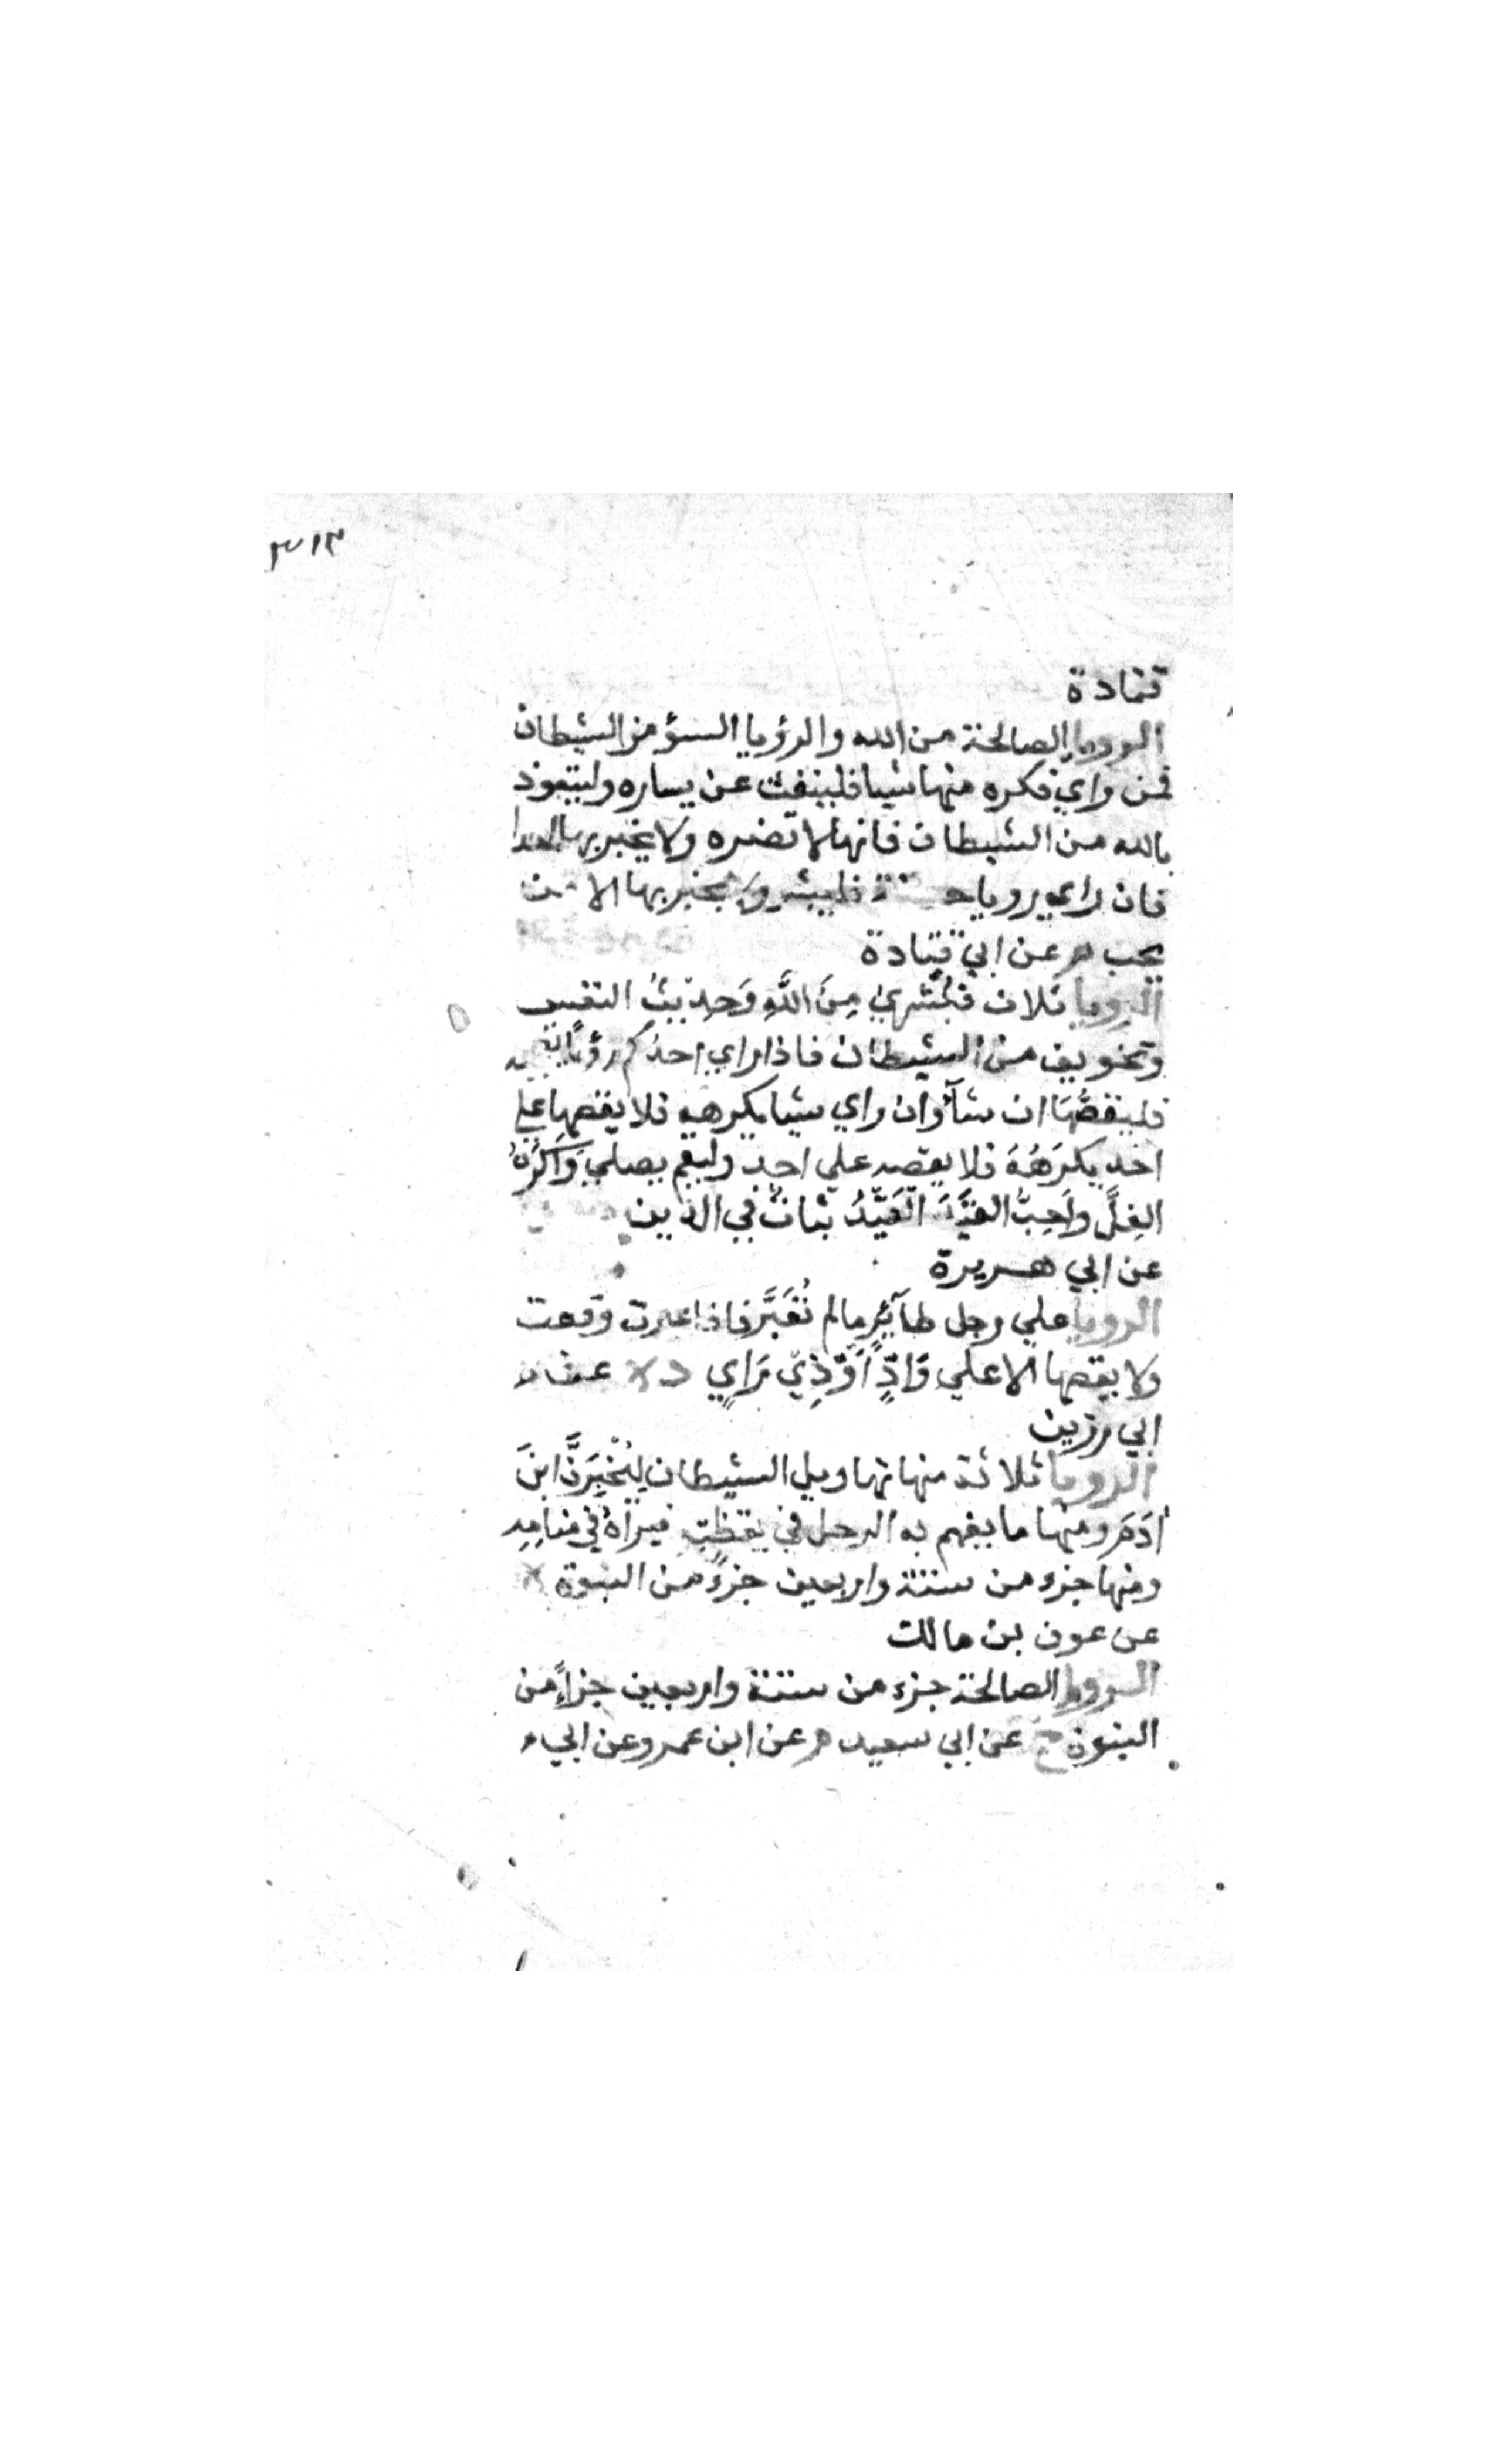 ٣١٣
قتادة
الرويا الصالحة من الله والرؤيا السؤ من الشيطان
فمن راي فكره منها شيا فلينفث عن يساره وليتعوذ
بالله من الشيطان فانها لا تضره ولا يخبر بها احدا
فان راي رويا حسنة فليبشر ولا يخبر بها الا من
يحب م عن ابي قتادة
الرويا ثلاث فبُشْرَيٰ مِنَ اللَّهِ وَحديثُ النفس
وتخويف من الشيطان فاذا راي احدُكم رؤيا
فليقصَّهَا ان شآ وان راي شيا يكرهه فلا يقصها علي
احد يكرَهُهُ فلا يقصه علي احد وليقم يصلي وَاَكْرَهُ
الغِلَّ واَحِبُّ القَيْدَ القَيْدُ ثباتٌ في الدين
عن ابي هريرة
الرويا علي رجل طآئر ما لم تُعَبَّر فاذا عبرت وقعت
ولا يقصها الا علي وَادٍّ اَوْ ذِي رَايٍ د ه عن
ابي رزين
الرويا ثلاثة منها تهاويل الشيطان لِيُحْزِنَ ابنَ
اٰدَمَ ومنها ما يهم به الرجل في يقظته فيراهُ في منامِه
ومنها جزء من ستة واربعين جزءً من النبوة ه
عن عوف بن مالك
الرويا الصالحة جزء من ستة واربعين جزاً من
النبوة خ عن ابي سعيد م عن ابن عمرو عن ابي